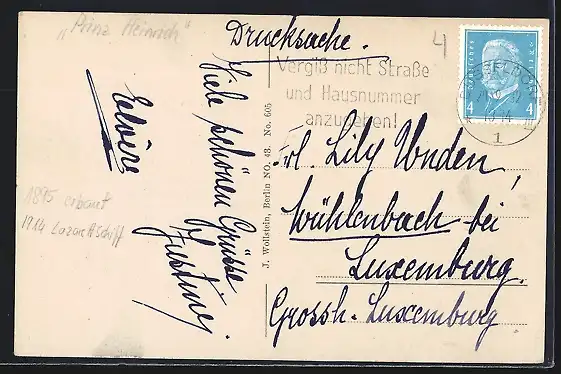 „Prinz Heinrich"
Drucksache.
4
Vergiß nicht Straße
und Hausnummer
anzugeben!
4 4
1
Viele schönen Grüsse
Elvire
1895 erbaut
1914 Lazarettschiff
J. Wollstein, Berlin NO. 43. No. 605
Frl. Lily Unden,
Mühlenbach bei
Luxemburg.
Grossh. Luxemburg.